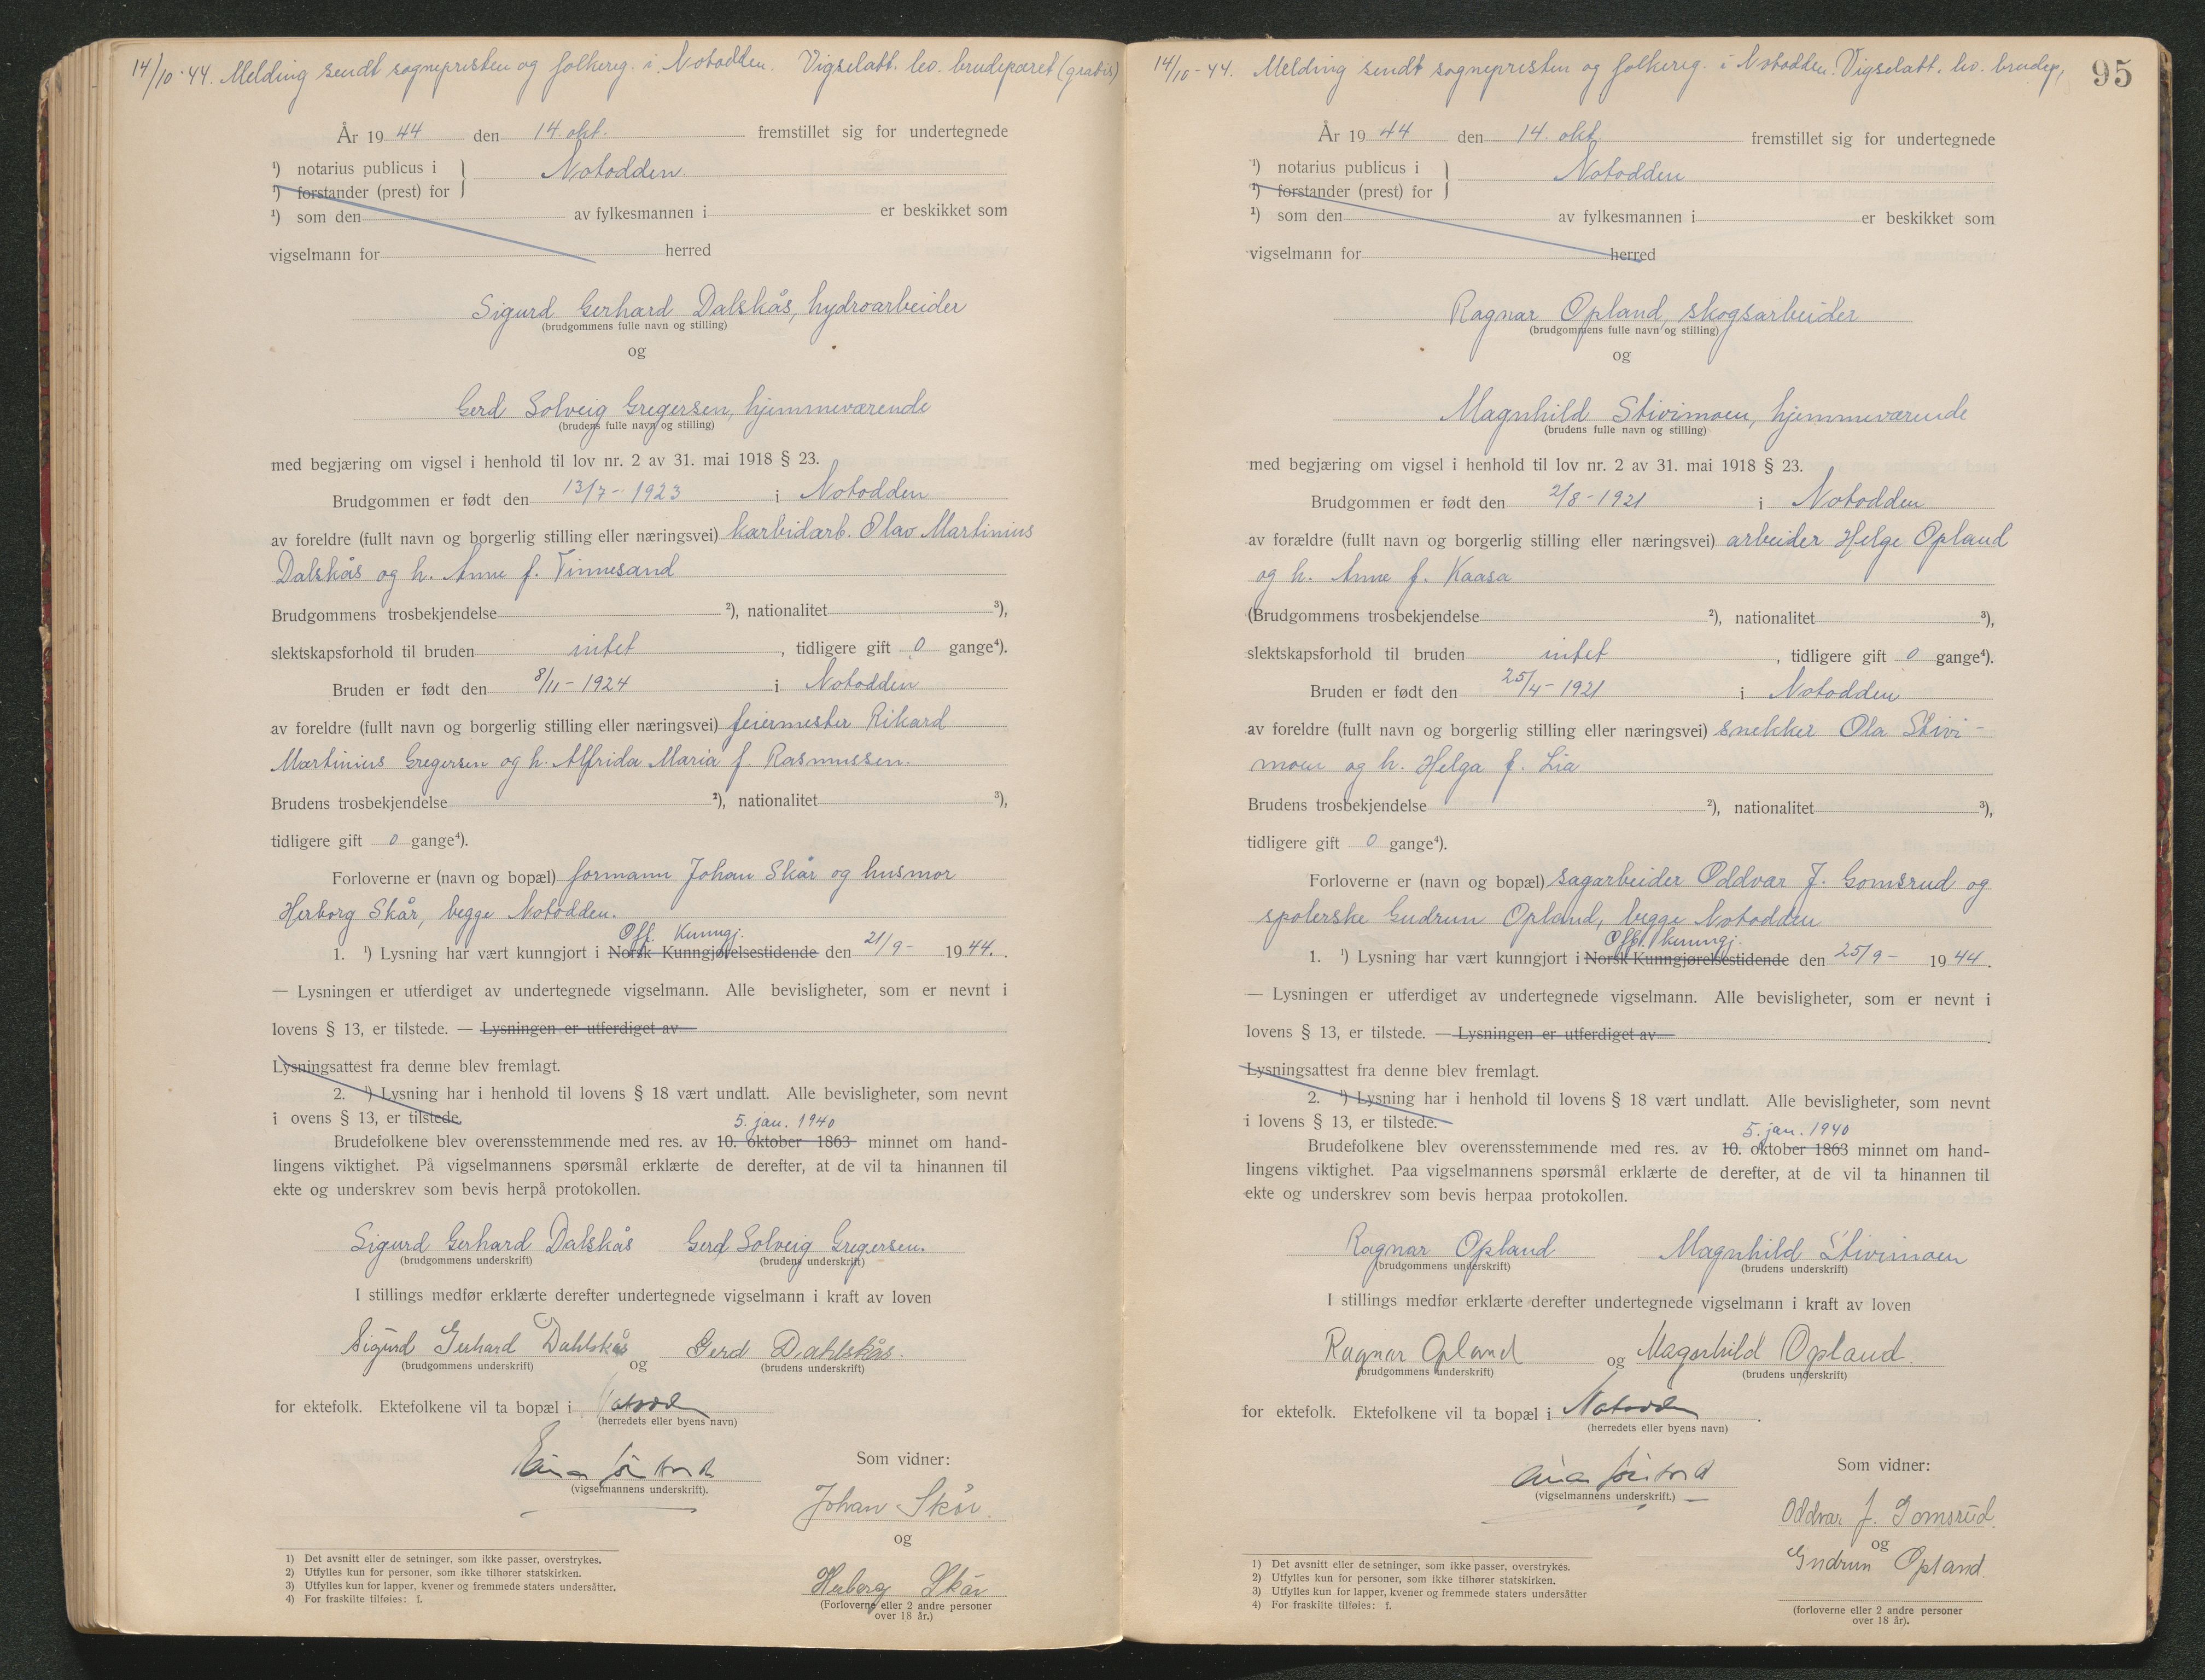 14/10-44. Melding sendt sognepresten og folkereg. i Notodden. Vigselatt. lev. brudeparet (gratis)
År 1944 den 14. okt. fremstillet sig for undertegnede
¹) notarius publicus i } Notodden.
¹) forstander (prest) for
¹) som den av fylkesmannen i er beskikket som
vigselmann for herred
Sigurd Gerhard Dalskås, hydroarbeider
(brudgommens fulle navn og stilling)
og
Gerd Solveig Gregersen, hjemmeværende
(brudens fulle navn og stilling)
med begjæring om vigsel i henhold til lov nr. 2 av 31. mai 1918 § 23.
Brudgommen er født den 13/7 - 1923 i Notodden
av foreldre (fullt navn og borgerlig stilling eller næringsvei) karbidarb. Olav Martinius
Dalskås og h. Anne f. Tinnesand
Brudgommens trosbekjendelse ²), nationalitet ³),
slektskapsforhold til bruden intet, tidligere gift 0 gange⁴).
Bruden er født den 8/11 - 1924 i Notodden
av foreldre (fullt navn og borgerlig stilling eller næringsvei) feiermester Rikard
Martinius Gregersen og h. Alfrida Maria f. Rasmussen.
Brudens trosbekjendelse ²), nationalitet ³),
tidligere gift 0 gange⁴).
Forloverne er (navn og bopæl) formann Johan Skår og husmor
Herborg Skår, begge Notodden.
Off. Kunngj.
1. ¹) Lysning har vært kunngjort i Norsk Kunngjørelsestidende den 21/9 - 1944.
— Lysningen er utferdiget av undertegnede vigselmann. Alle bevisligheter, som er nevnt i
lovens § 13, er tilstede. — Lysningen er utferdiget av
Lysningsattest fra denne blev fremlagt.
2. ¹) Lysning har i henhold til lovens § 18 vært undlatt. Alle bevisligheter, som nevnt
i ovens § 13, er tilstede.
5. jan. 1940
Brudefolkene blev overensstemmende med res. av 10. oktober 1863 minnet om hand-
lingens viktighet. På vigselmannens spørsmål erklærte de derefter, at de vil ta hinannen til
ekte og underskrev som bevis herpå protokollen.
Sigurd Gerhard Dalskås Gerd Solveig Gregersen.
(brudgommens underskrift) (brudens underskrift)
I stillings medfør erklærte derefter undertegnede vigselmann i kraft av loven
Sigurd Gerhard Dahlskås og Gerd Dahlskås.
(brudgommens underskrift) (brudens underskrift)
for ektefolk. Ektefolkene vil ta bopæl i Notodden
(herredets eller byens navn)
(vigselmannens underskrift).
Som vidner:
Johan Skår.
og
Herborg Skår
(Forloverne eller 2 andre personer
over 18 år.)
1) Det avsnitt eller de setninger, som ikke passer, overstrykes.
2) Utfylles kun for personer, som ikke tilhører statskirken.
3) Utfylles kun for lapper, kvener og fremmede staters undersåtter.
4) For fraskilte tilføies: f.
14/10-44. Melding sendt sognepresten og folkereg. i Notodden. Vigselatt. lev. brudep.
95
År 1944 den 14. okt fremstillet sig for undertegnede
¹) notarius publicus i } Notodden
¹) forstander (prest) for
¹) som den av fylkesmannen i er beskikket som
vigselmann for herred
Ragnar Opland, skogsarbeider
(brudgommens fulle navn og stilling)
og
Magnhild Stivimoen, hjemmeværende
(brudens fulle navn og stilling)
med begjæring om vigsel i henhold til lov nr. 2 av 31. mai 1918 § 23.
Brudgommen er født den 2/8 - 1921 i Notodden
av forældre (fullt navn og borgerlig stilling eller næringsvei) arbeider Helge Opland
og h. Anne f. Kaasa
(Brudgommens trosbekjendelse ²), nationalitet ³),
slektskapsforhold til bruden intet, tidligere gift 0 gange⁴).
Bruden er født den 25/4 - 1921 i Notodden
av foreldre (fullt navn og borgerlig stilling eller næringsvei) snekker Ola Stivi-
moen og h. Helga f. Lia
Brudens trosbekjendelse ²), nationalitet ³),
tidligere gift 0 gange⁴).
Forloverne er (navn og bopæl) sagarbeider Oddvar J. Gomsrud og
spolerske Gudrun Opland, begge Notodden
Offl. kunngj.
1. ¹) Lysning har vært kunngjort i Norsk Kunngjørelsestidende den 25/9 - 1944.
— Lysningen er utferdiget av undertegnede vigselmann. Alle bevisligheter, som er nevnt i
lovens § 13, er tilstede. — Lysningen er utferdiget av
Lysningsattest fra denne blev fremlagt.
2. ¹) Lysning har i henhold til lovens § 18 vært undlatt. Alle bevisligheter, som nevnt
i lovens § 13, er tilstede.
5. jan. 1940
Brudefolkene blev overensstemmende med res. av 10. oktober 1863 minnet om hand-
lingens viktighet. Paa vigselmannens spørsmål erklærte de derefter, at de vil ta hinannen til
ekte og underskrev som bevis herpaa protokollen.
Ragnar Opland Magnhild Stivimoen
(brudgommens underskrift) (brudens underskrift)
I stillings medfør erklærte derefter undertegnede vigselmann i kraft av loven
Ragnar Opland og Magnhild Opland.
(brudgommens underskrift) (brudens underskrift)
for ektefolk. Ektefolkene vil ta bopæl i Notodden.
(herredets eller byens navn)
(vigselmannens underskrift.)
Som vidner:
Oddvar J. Gomsrud.
og
Gudrun Opland.
(forloverne eller 2 andre personer
over 18 år).
1) Det avsnitt eller de setninger, som ikke passer, overstrykes.
2) Utfylles kun for personer, som ikke tilhører statskirken.
3) Utfylles kun for lapper, kvener og fremmede staters undersåtter
4) For fraskilte tilføies: f.